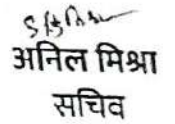 अनिल मिश्रा
सचिव